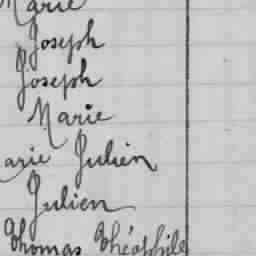 Marie
Joseph
Joseph
Marie
arie Julien
Julien
Thomas Théophile